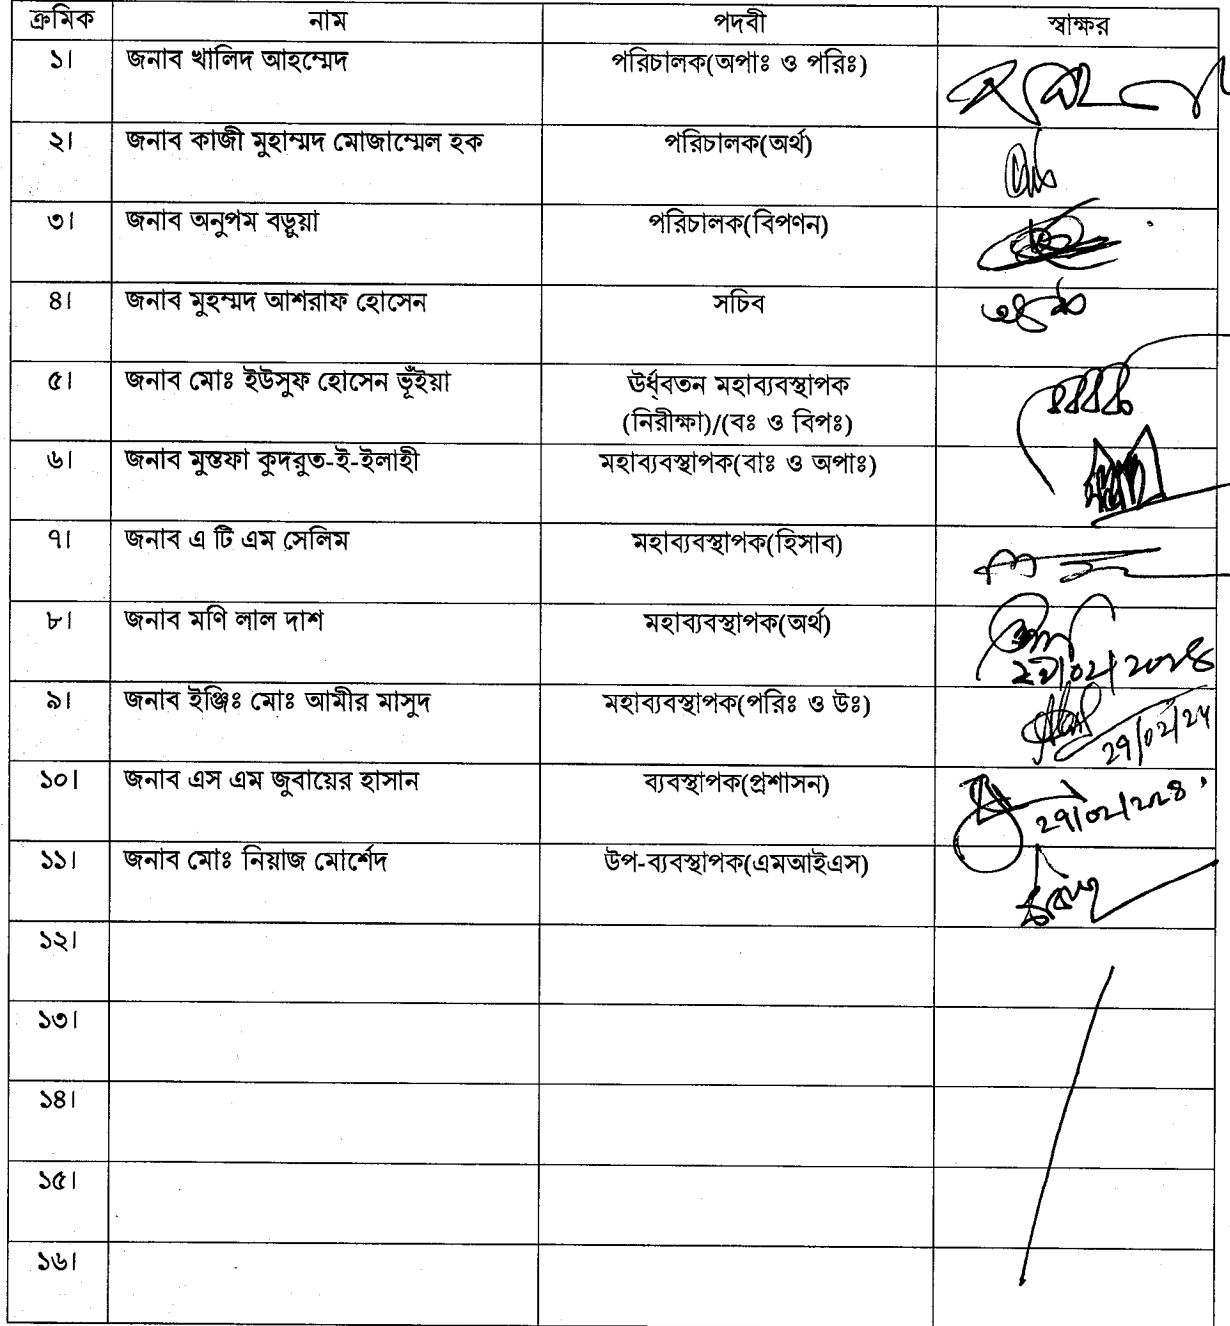 ক্রমিক নাম পদবী স্বাক্ষর
১। জনাব খালিদ আহম্মেদ পরিচালক(অপাঃ ও পরিঃ)
২। জনাব কাজী মুহাম্মদ মোজাম্মেল হক পরিচালক(অর্থ)
৩। জনাব অনুপম বড়ুয়া পরিচালক(বিপণন)
৪। জনাব মুহম্মদ আশরাফ হোসেন সচিব
৫। জনাব মোঃ ইউসুফ হোসেন ভূঁইয়া ঊর্ধ্বতন মহাব্যবস্থাপক
(নিরীক্ষা)/(বঃ ও বিপঃ)
৬। জনাব মুস্তফা কুদরুত-ই-ইলাহী মহাব্যবস্থাপক(বাঃ ও অপাঃ)
৭। জনাব এ টি এম সেলিম মহাব্যবস্থাপক(হিসাব)
৮। জনাব মণি লাল দাশ মহাব্যবস্থাপক(অর্থ)
২৭/০২/২০২৪
৯। জনাব ইঞ্জিঃ মোঃ আমীর মাসুদ মহাব্যবস্থাপক(পরিঃ ও উঃ)
২৭/০২/২৪
১০। জনাব এস এম জুবায়ের হাসান ব্যবস্থাপক(প্রশাসন)
২৭/০২/২০২৪
১১। জনাব মোঃ নিয়াজ মোর্শেদ উপ-ব্যবস্থাপক(এমআইএস)
১২।
১৩।
১৪।
১৫।
১৬।